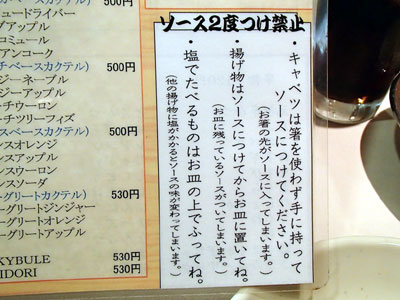 ュードライバー
プアップル
コミュール
アンコーク
チベースカクテル) 500円
ジー・ネーブル
ジーアップル
ーチウーロン
ーチツリーフィズ
スベースカクテル) 500円
ンスオレンジ
ンスアップル
ンスウーロン
ンスソーダ
ーグリートカクテル) 530円
ーグリートジンジャー
ーグリートオレンジ
ーグリートアップル
KYBULE 530円
IDORI 530円
500円
ソース2度つけ禁止
・キャベツは箸を使わず手に持って
ソースにつけてください。
(お箸の先がソースに入ってしまいます。)
・揚げ物はソースにつけてからお皿に置いてね。
(お皿に残っているソースがついてしまいます。)
・塩でたべるものはお皿の上でふってね。
(他の揚げ物に塩がかかるとソースの味が変わってしまいます。)